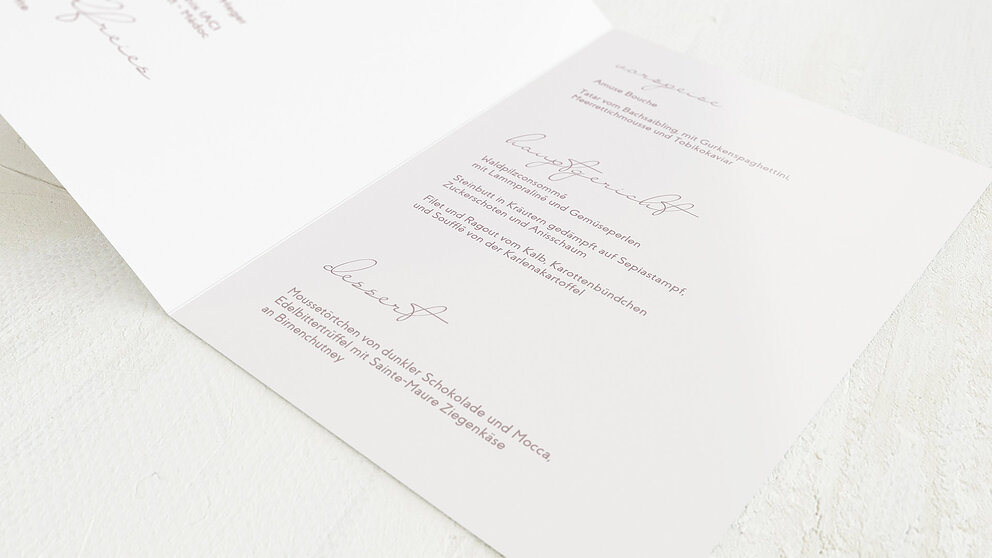 Heger
lix (AC)
t - Médoc
lfreies
tte
vorspeise
Amuse Bouche
Tatar vom Bachsaibling mit Gurkenspaghettini,
Meerrettichmousse und Tobikokaviar
hauptgericht
Waldpilzconsommé
mit Lammpraliné und Gemüseperlen
Steinbutt in Kräutern gedämpft auf Sepiastampf,
Zuckerschoten und Anisschaum
Filet und Ragout vom Kalb, Karottenbündchen
und Soufflé von der Karlenakartoffel
dessert
Moussetörtchen von dunkler Schokolade und Mocca,
Edelbittertrüffel mit Sainte-Maure Ziegenkäse
an Birnenchutney